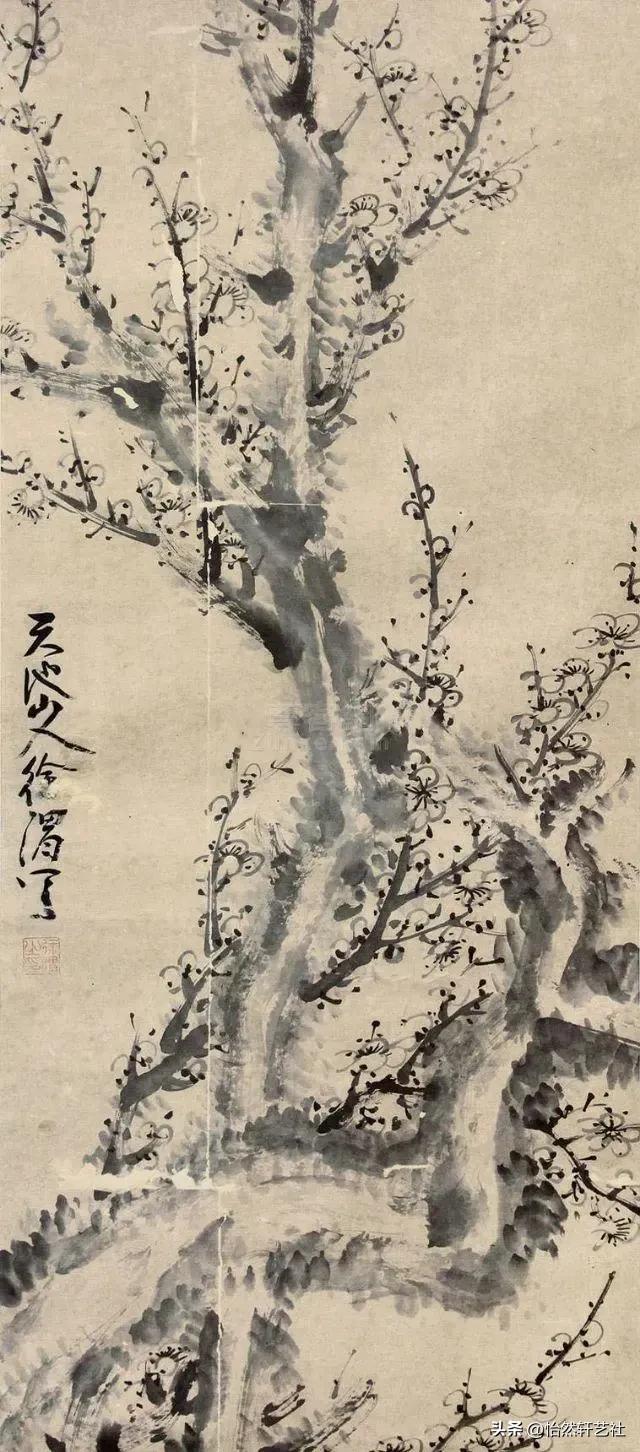 天池山人徐渭写
头条 @怡然轩艺社